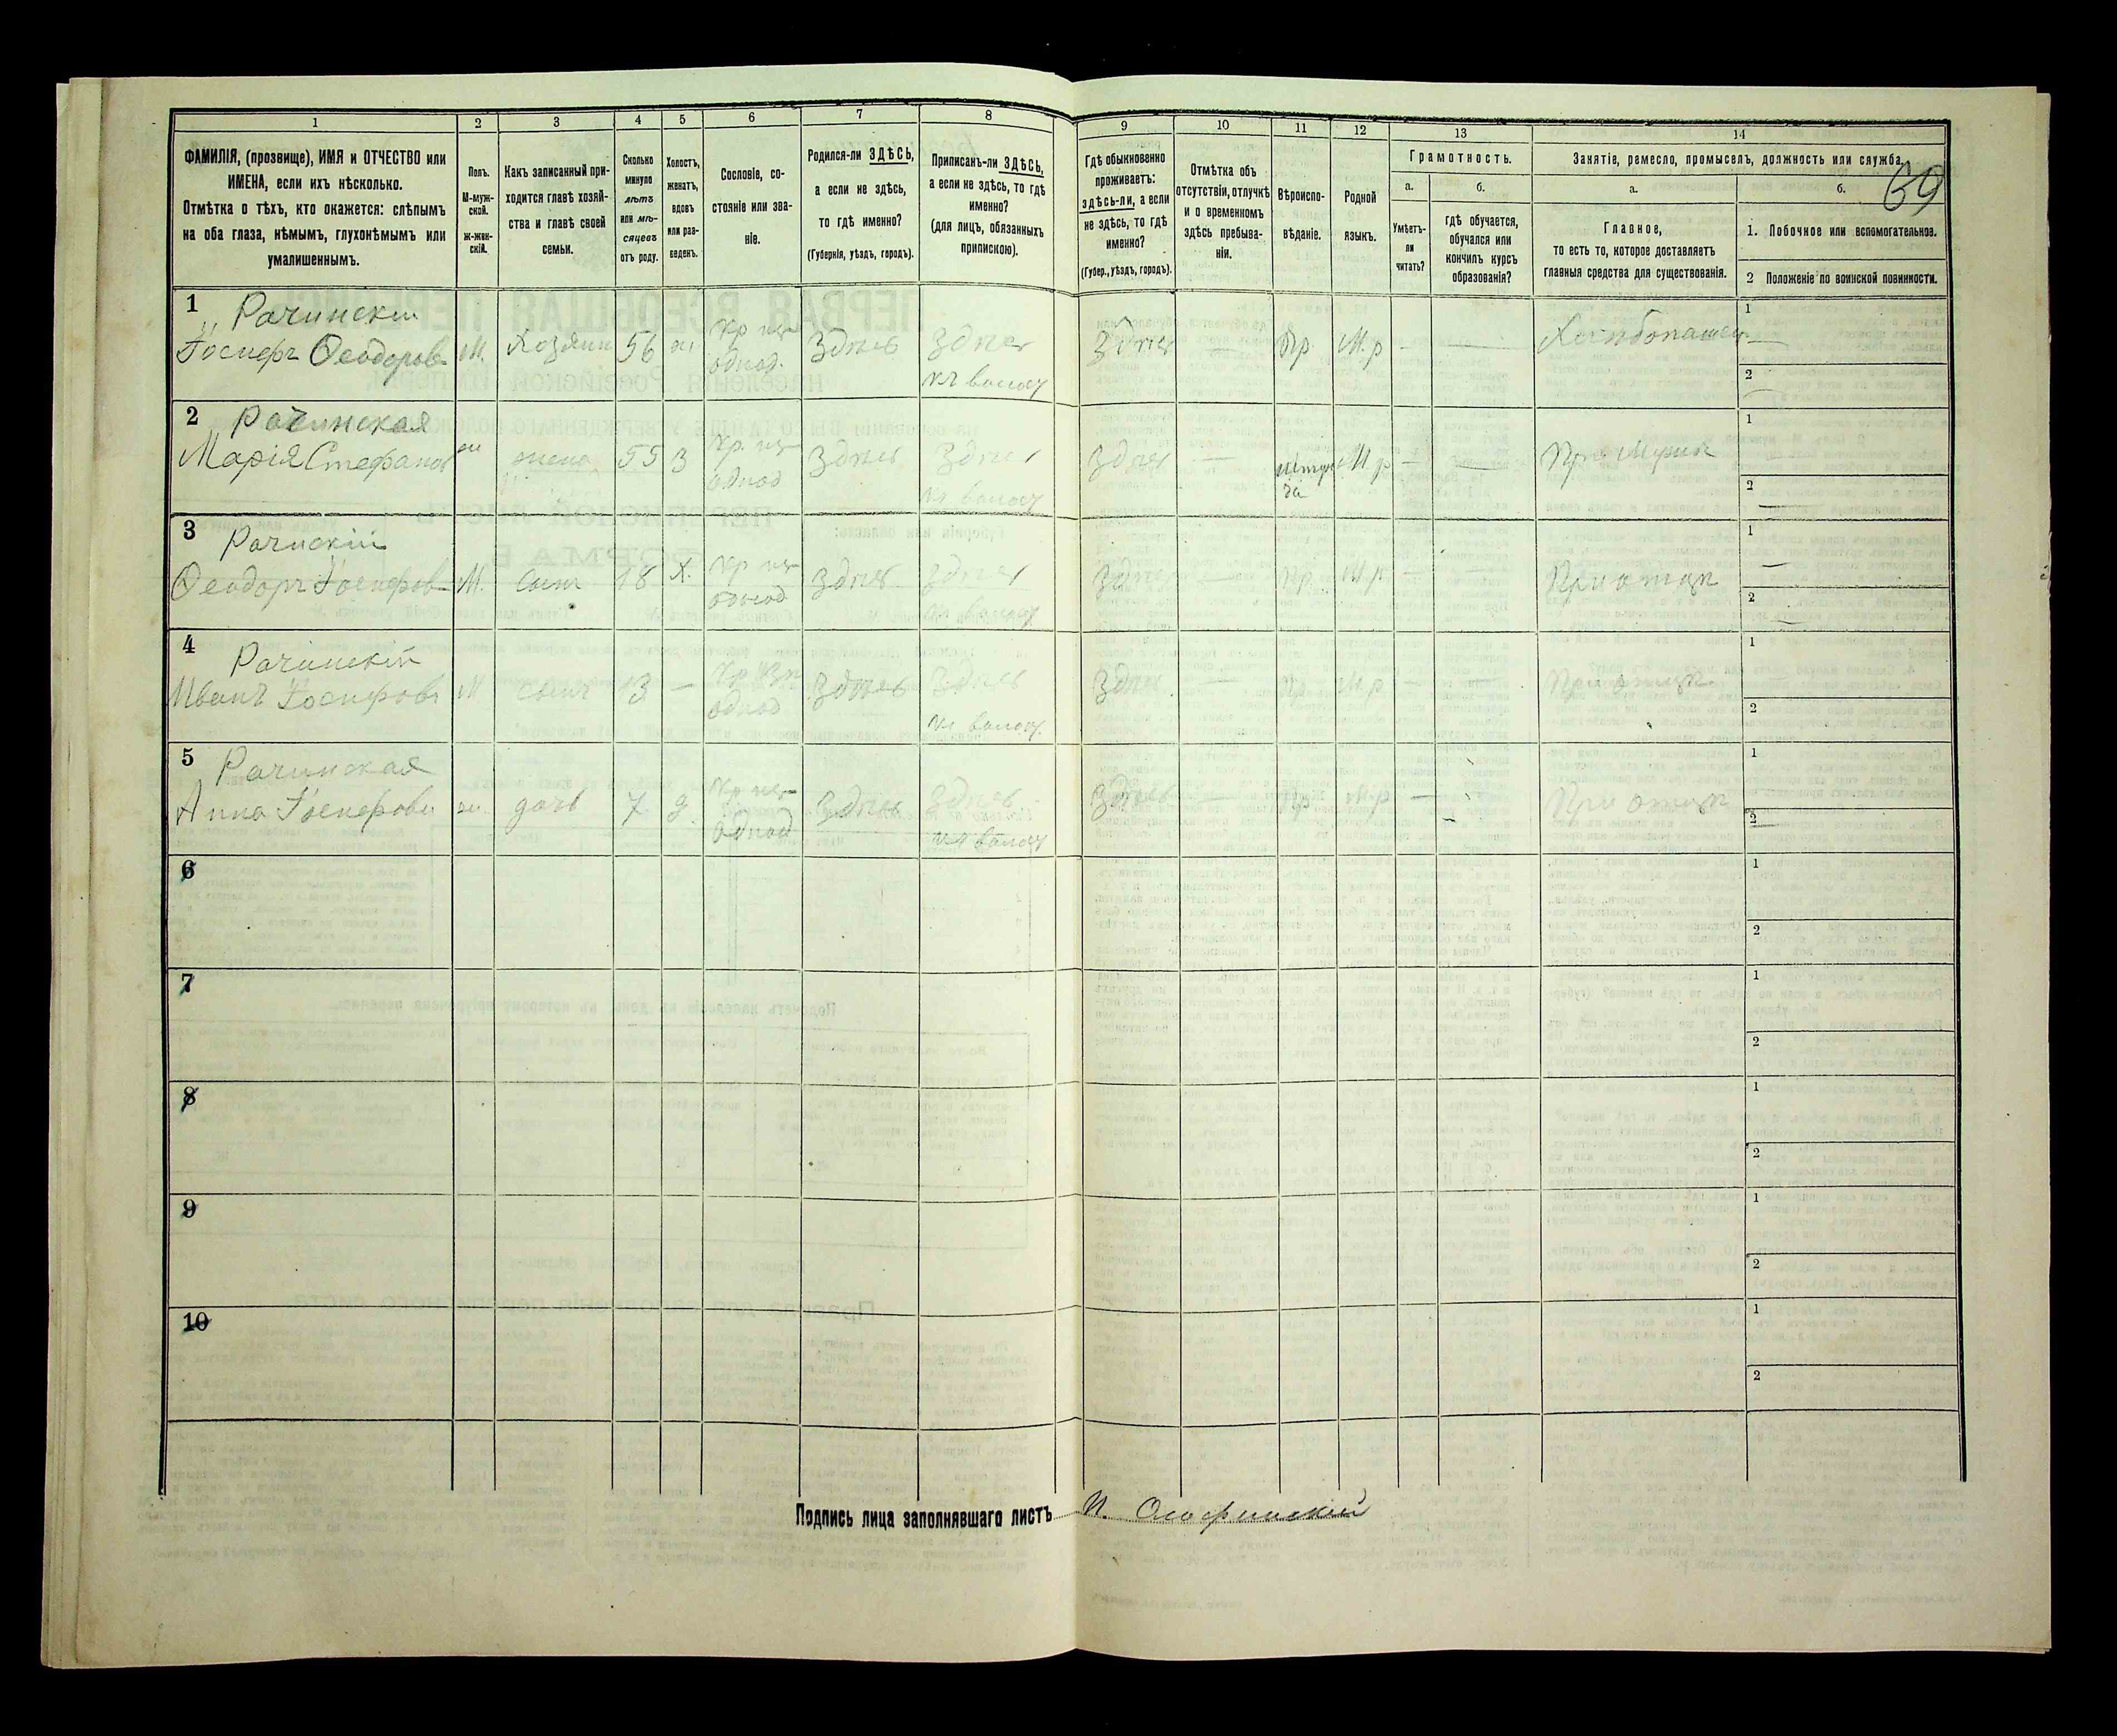 69
1 2 3 4 5 6 7 8 9 10 11 12 13 14
ФАМИЛІЯ, (прозвище), ИМЯ и ОТЧЕСТВО или
ИМЕНА, если ихъ нѣсколько.
Отмѣтка о тѣхъ, кто окажется: слѣпымъ
на оба глаза, нѣмымъ, глухонѣмымъ или
умалишеннымъ.
Полъ.
М-муж-
ской.
ж-жен-
скій.
Какъ записанный при-
ходится главѣ хозяй-
ства и главѣ своей
семьи.
Сколько
минуло
лѣтъ
или мѣ-
сяцевъ
отъ роду.
Холостъ,
женатъ,
вдовъ
или раз-
веденъ.
Сословіе, со-
стояніе или зва-
ніе.
Родился-ли ЗДѢСЬ,
а если не здѣсь,
то гдѣ именно?
(Губернія, уѣздъ, городъ).
Приписанъ-ли ЗДѢСЬ,
а если не здѣсь, то гдѣ
именно?
(для лицъ, обязанныхъ
припискою).
Гдѣ обыкновенно
проживаетъ:
здѣсь-ли, а если
не здѣсь, то гдѣ
именно?
(Губер., уѣздъ, городъ).
Отмѣтка объ
отсутствіи, отлучкѣ
и о временномъ
здѣсь пребыва-
ніи.
Вѣроиспо-
вѣданіе.
Родной
языкъ.
Грамотность.
а.
Умѣетъ-
ли
читать?
б.
гдѣ обучается,
обучался или
кончилъ курсъ
образованія?
Занятіе, ремесло, промыселъ, должность или служба.
а.
Главное,
то есть то, которое доставляетъ
главныя средства для существованія.
б.
1. Побочное или вспомогательное.
2 Положеніе по воинской повинности.
1 Рачинскій
Іосифъ Ѳеодоров М. Хозяин 56 Здѣсь Здѣсь Здѣсь — Пр М.р — — Хлѣбопашец 1 —
однод. 2
2 Рачинская
Марія Стефанов жена 55 З Кр. Здѣсь Здѣсь Здѣсь — М р — — При Мужѣ 1
однод 2 —
3 Рачнскій
Ѳеодоръ Іосифов М. сынъ 18 Х. Кр Здѣсь Здѣсь Здѣсь — Пр. М р — — При отцѣ 1 —
однод 2 —
4 Рачинскій
Иванъ Іосифовъ М сынъ 13 — Кр Здѣсь Здѣсь Здѣсь — Пр М р — — При отцѣ 1
однод 2
5 Рачинская
Анна Іосифовн ж. дочь 7 Кр Здѣсь Здѣсь Здѣсь — Пр М.р — При отцѣ 1
однод 2
6 1
2
7 1
2
8 1
2
9 1
2
10 1
2
Подпись лица заполнявшаго листъ